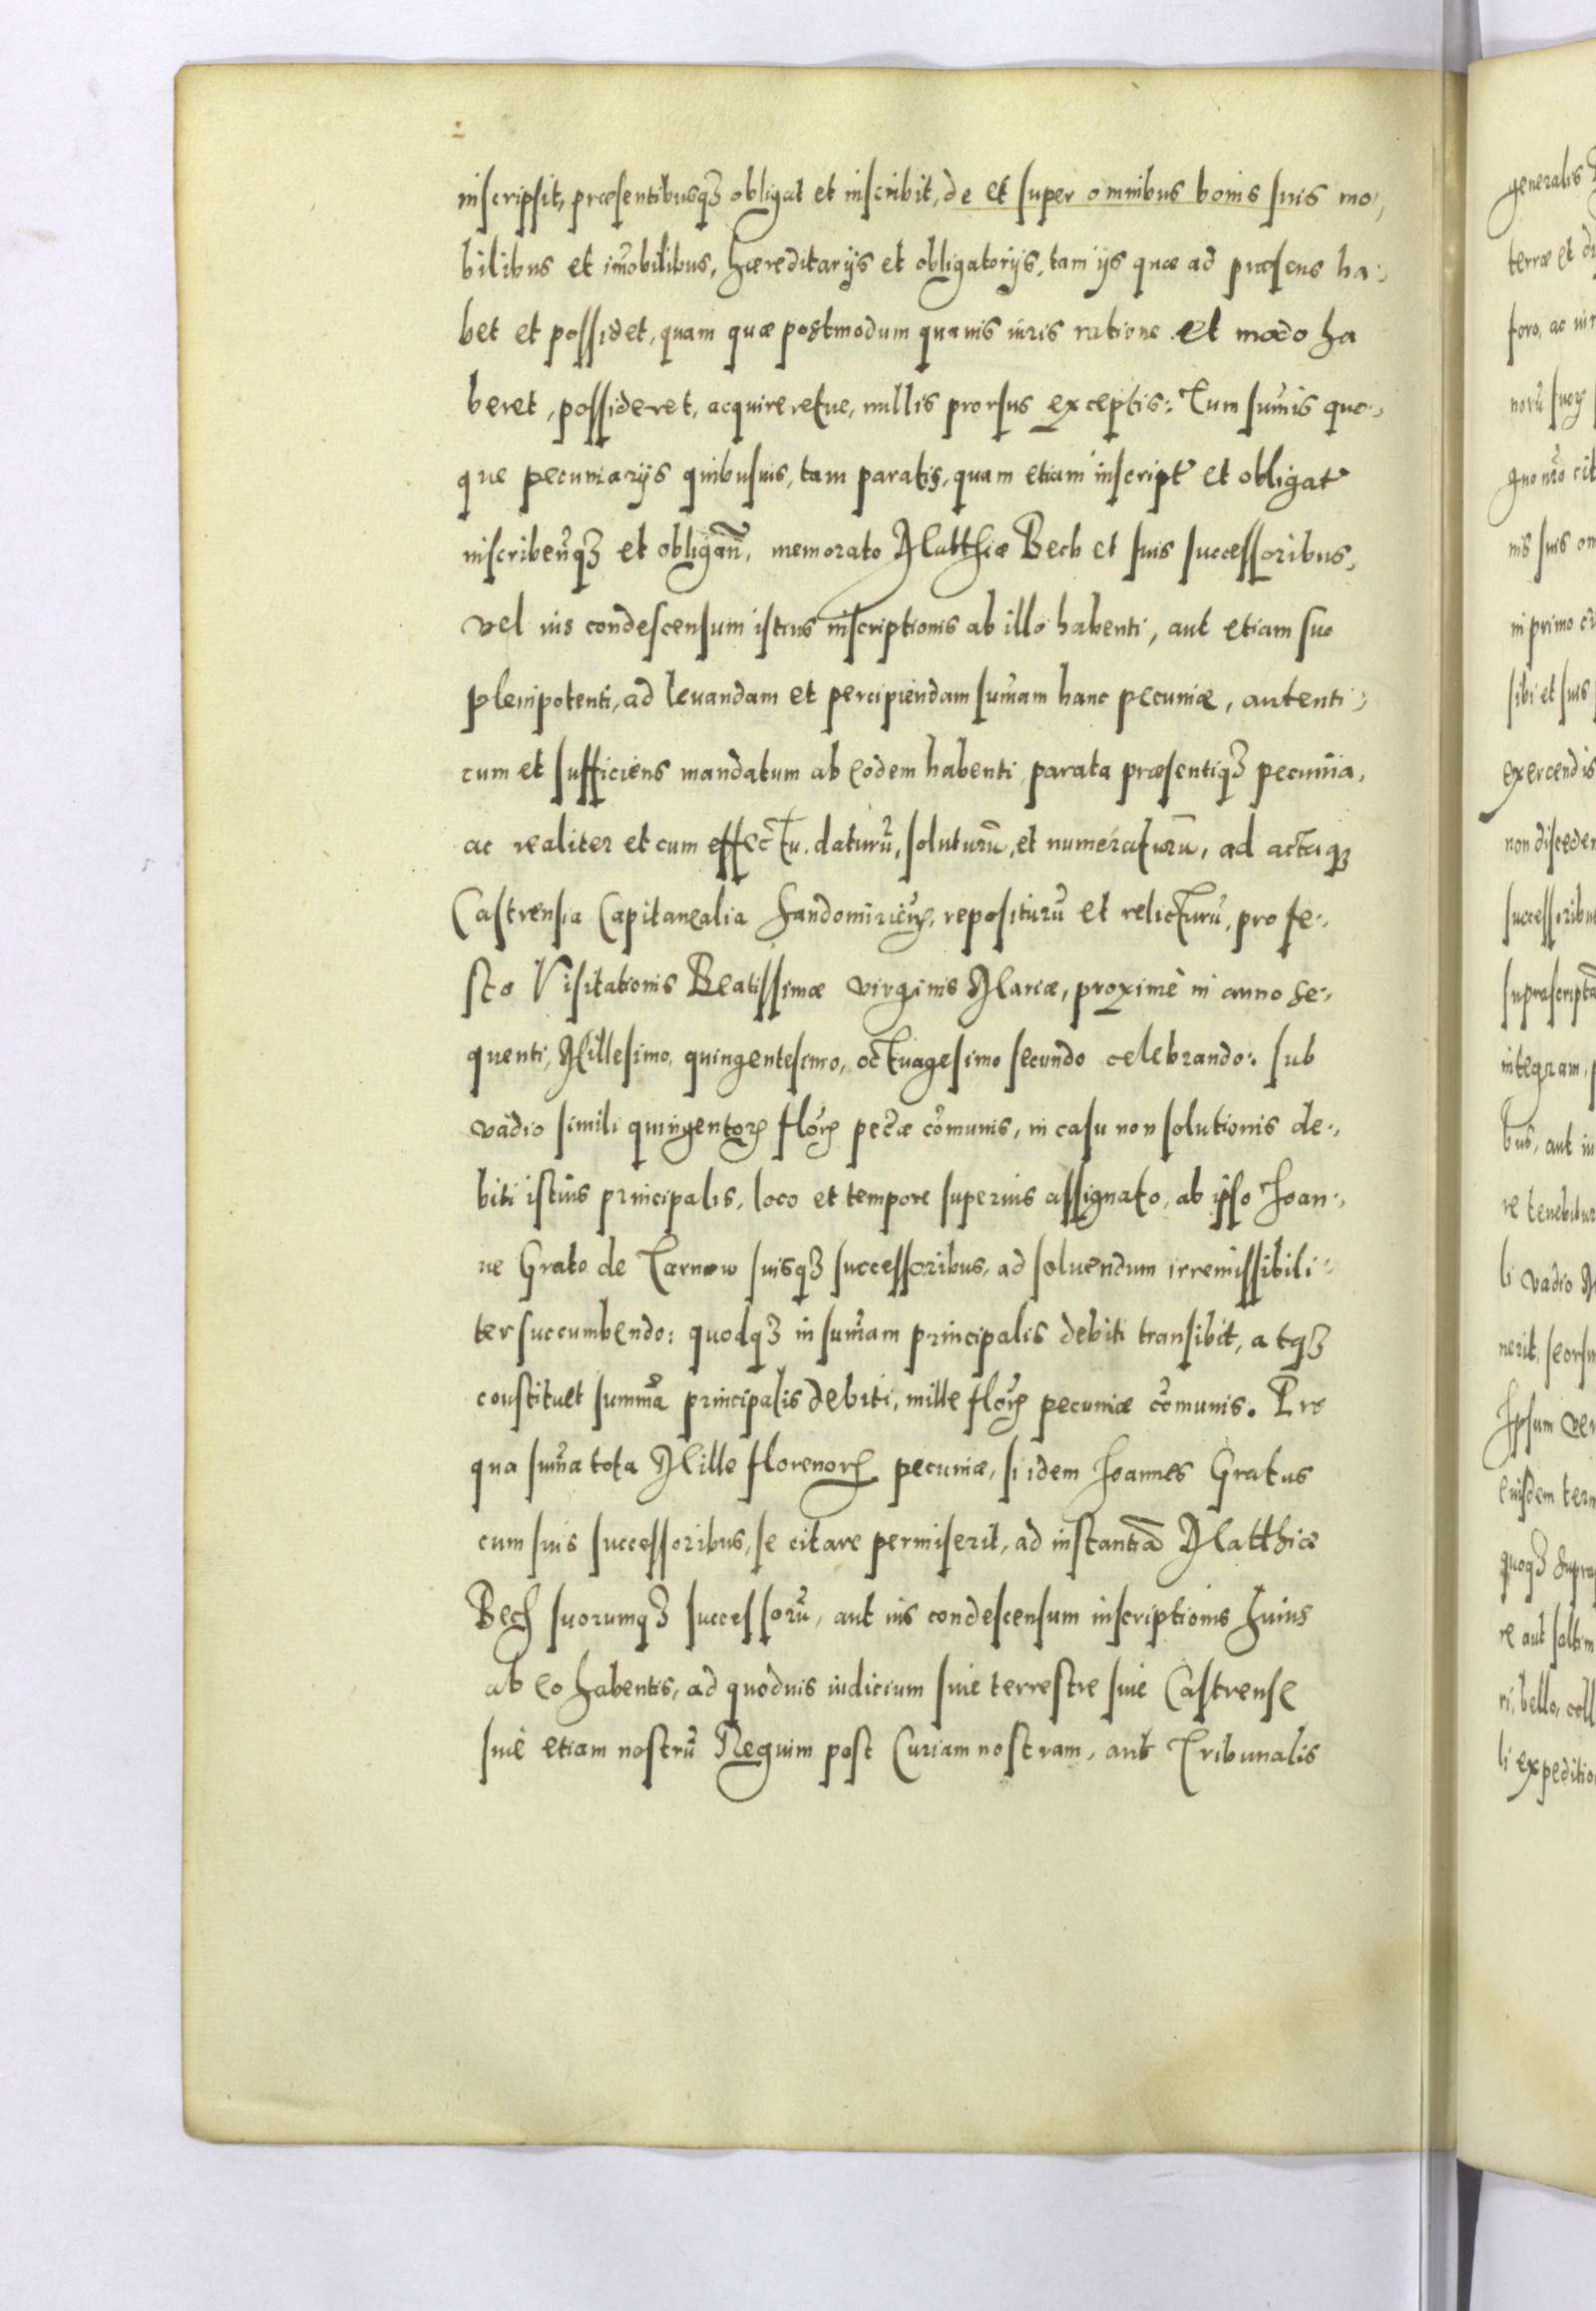 inscripsit, præsentibusqȝ obligat et inscribit, de et super omnibus bonis suis mo-
bilibus et im̃obilibus, hæreditarijs et obligatorijs, tam ijs quæ ad præsens ha-
bet et possidet, quam quæ postmodum quauis iuris ratione et modo ha
beret, possideret, acquireretue, nullis prorsus exceptis: Tum sum̃is quo-
que pecuniarijs quibusuis, tam paratis, quam etiam inscript̃ et obligat̃
inscribeñqȝ et obligañ, memorato Matthiæ Bech et suis successoribus,
vel ius condescensum istius inscriptionis ab illo habenti, aut etiam suo
plenipotenti, ad leuandam et percipiendam sum̃am hanc pecuniæ, autenti-
cum et sufficiens mandatum ab eodem habenti parata præsentiqȝ pecunia,
ac realiter et cum effectu daturũ, soluturũ, et numeraturũ, ad actaqȝ
Castrensia Capitanealia Sandomirieñ, repositurũ et relicturũ, pro fe-
sto Visitationis Beatissimæ virginis Mariæ, proximè in anno se-
quenti, Millesimo, quingentesimo, octuagesimo secundo celebrando: sub
vadio simili quingentoꝝ floꝝ pec̃æ com̃unis, in casu non solutionis de-
biti istius principalis, loco et tempore superius assignato, ab ipso Joan-
ne Grato de Tarnow suisqȝ successoribus, ad soluendum irremissibili-
ter succumbendo: quodqȝ in sum̃am principalis debiti transibit, atqȝ
constituet summã principalis debiti, mille floꝝ pecuniæ com̃unis. Pro
qua sum̃a tota Mille florenoꝝ pecuniæ, si idem Joannes Gratus
cum suis successoribus, se citare permiserit, ad instantiã Matthiæ
Bech suorumqȝ successorũ, aut ius condescensum inscriptionis huius
ab eo habentis, ad quoduis iudicium siue terrestre siue Castrense
siuè etiam nostrũ Regium post Curiam nostram, aut Tribunalis